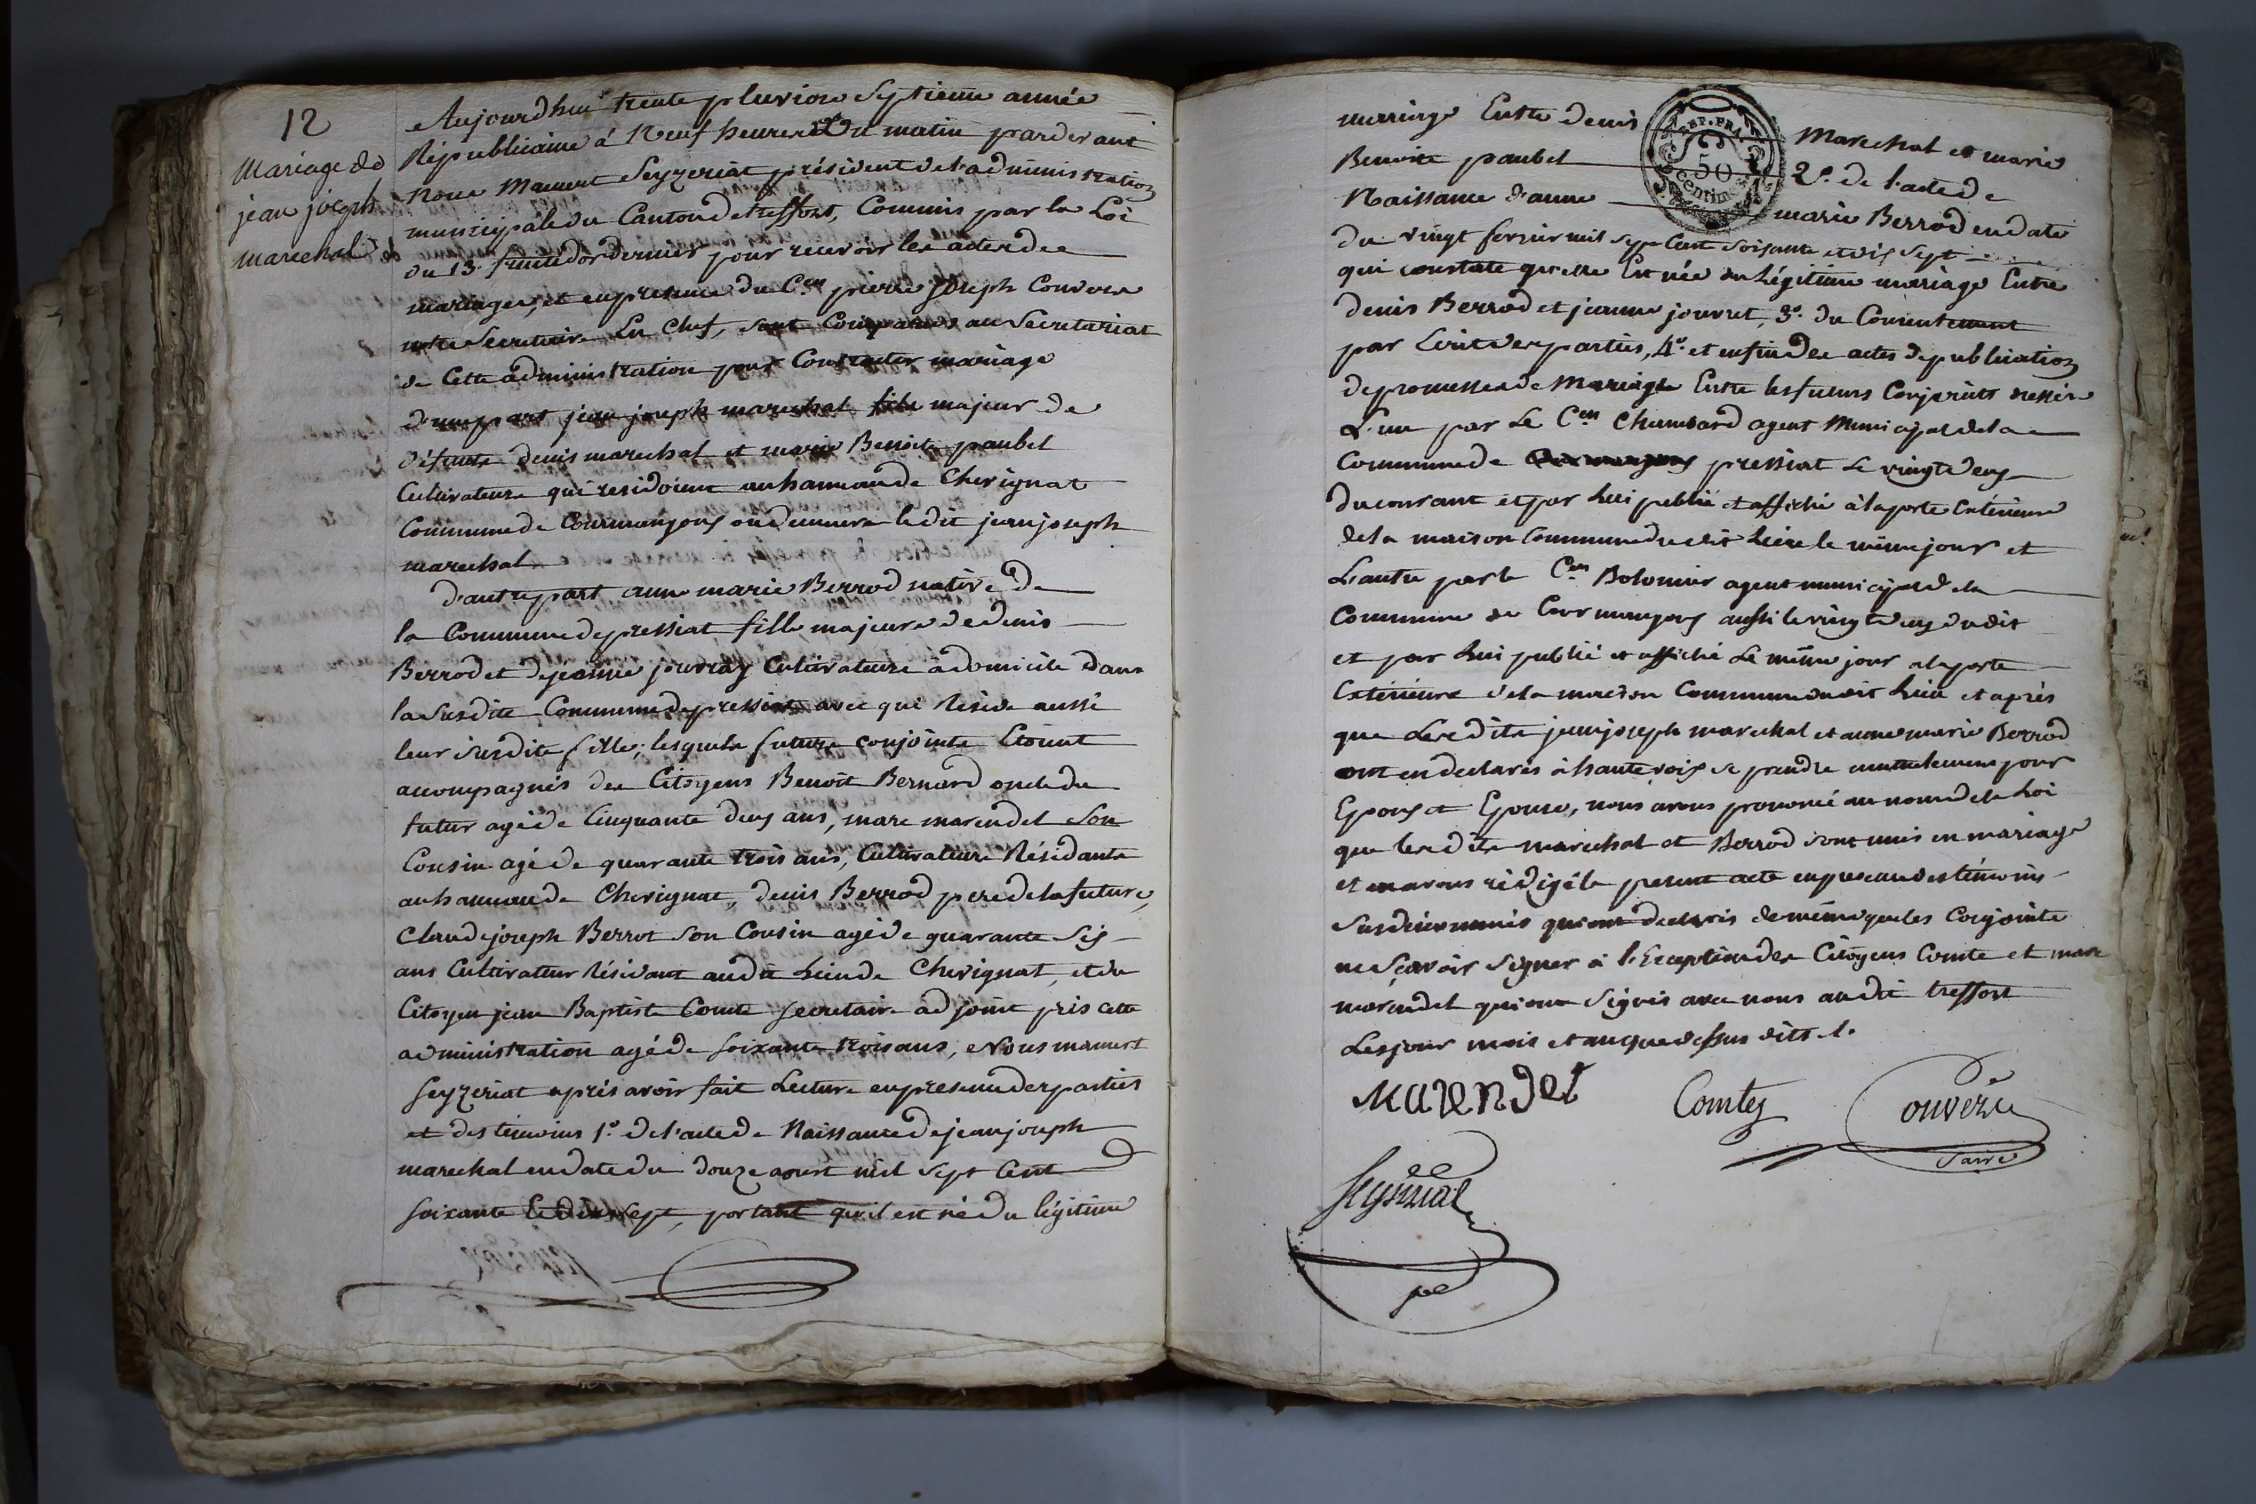 12
Mariage de
jean joseph
marechal
Aujourdhui trente pluviose Septieme année
Républicaine á Neuf heures du matin pardevant
Nous Mamert Seyzeriat président de l'administration
municipale du Canton de treffort, Commis par la Loi
du 13. fructidor dernier pour recevoir les actes de
mariages, et en presence du C.en pierre joseph Convers
notre Secretaire En Chef, sont Comparus au Secretariat
de Cette administration pour Contracter mariage
d'une part jean joseph marechal fils majeur de
défunts denis marechal et marie Benoite paubel
Cultivateurs qui residoient au hameau de Cherignat
Commune de Courmangoux ou demeure le dit jean joseph
marechal
d'autre part anne marie Berrod native de
la Commune de pressiat fille majeure de denis
Berrod et de jeanne jouvray Cultivateurs a domicile dans
la Susdite Commune de pressiat avec qui Reside aussi
leur susdite fille; lesquels futurs conjoints Etoient
accompagnés des Citoyens Benoit Bernard oncle du
futur agé de Cinquante deux ans, marc marendet son
Cousin agé de quarante trois ans, Cultivateurs Résidants
au hameau de Cherignat, denis Berrod pere de la future,
Claude joseph Berrot son Cousin agé de quarante six
ans Cultivateur Résidant audit Lieu de Cherignat, et du
Citoyen jean Baptiste Comte Secretaire adjoint près cette
administration agé de soixante trois ans, Nous mamert
Seyzeriat après avoir fait Lecture en presence des parties
et des temoins 1.° de l'acte de Naissance de jean joseph
marechal en date du douze aoust mil sept Cent
soixante et dix sept, portant qu'il est né du légitime
mariage Entre denis Marechal et marie
Benoite paubel 2.° de l'acte de
Naissance d'anne marie Berrod en date
REP. FRA.
50
centimes
du vingt fevrier mil sept Cent soixante et dix sept
qui constate qu'elle Est née du Légitime mariage Entre
denis Berrod et jeanne jouvret, 3.° du Consentement
par Ecrit des parties, 4.° et enfin des actes de publication
de promesses de Mariage Entre les futurs Conjoints dressés
L'un par Le C.en Chambard agent Municipal de la
Commune de pressiat Le vingt deux
du courant et par Lui publié et affiché à la porte Extérieure
de la maison Commune dudit Lieu le même jour et
L'autre par le C.en Bolomier agent municipal de la
Commune de Courmangoux aussi le vingt deux dudit
et par Lui publié et affiché Le même jour a la porte
Extérieure de la maison Commune dudit Lieu et après
que Lesdits jean joseph marechal et anne marie Berrod
ont eu declarés à haute voix se prendre mutuellement pour
Epoux et Epouse, nous avons prononcé au nom de la Loi
que lesdits marechal et Berrod sont unis en mariage
et en avons rédigé le present acte en presence des témoins
Susdénommés qui ont declarés de même que les Conjoints
ne Scavoir Signer à l'Exception des Citoyens Comte et marc
marendet qui ont Signés avec nous audit treffort
Les jour mois et an que dessus dits.
Marendet
Comte
Convers
Seyzeriat